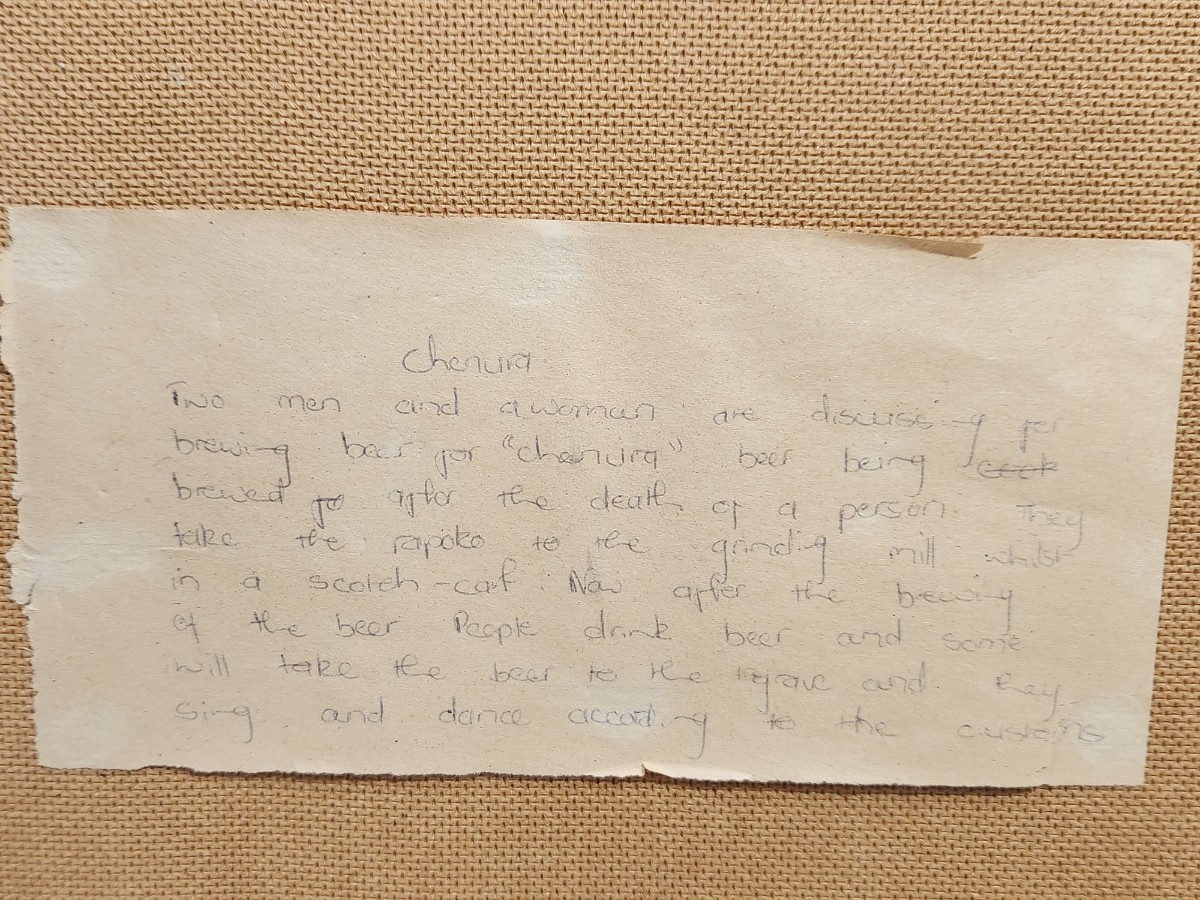 Chenura
Two men and a woman are discussing for
brewing beer for "chenura" beer being cook
brewed fo after the death of a person. They
take the rapoko to the grinding mill whilst
in a scotch-cart. Now after the brewing
of the beer People drink beer and some
will take the beer to the grave and they
sing and dance according to the customs